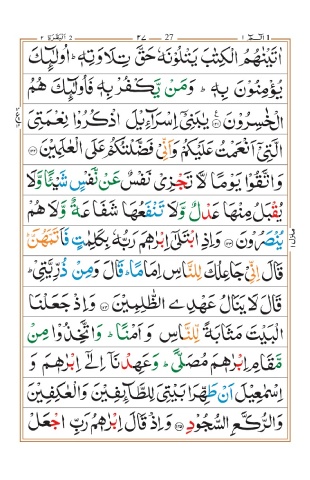 الٓمّٓ ١ 27 ٢٧ البقرة 2
اٰتَيْنٰهُمُ الْكِتٰبَ يَتْلُوْنَهٗ حَقَّ تِلَاوَتِهٖ ؕ اُولٰٓئِكَ
يُؤْمِنُوْنَ بِهٖ ؕ وَمَنْ يَّكْفُرْ بِهٖ فَاُولٰٓئِكَ هُمُ
الْخٰسِرُوْنَ ﴿۱۲۱﴾ يٰبَنِيْٓ اِسْرَآءِيْلَ اذْكُرُوْا نِعْمَتِيَ
الَّتِيْٓ اَنْعَمْتُ عَلَيْكُمْ وَاَنِّيْ فَضَّلْتُكُمْ عَلَي الْعٰلَمِيْنَ ﴿۱۲۲﴾
وَاتَّقُوْا يَوْمًا لَّا تَجْزِيْ نَفْسٌ عَنْ نَّفْسٍ شَيْـًٔا وَّلَا
يُقْبَلُ مِنْهَا عَدْلٌ وَّلَا تَنْفَعُهَا شَفَاعَةٌ وَّلَا هُمْ
يُنْصَرُوْنَ ﴿۱۲۳﴾ وَاِذِ ابْتَلٰٓي اِبْرٰهٖمَ رَبُّهٗ بِكَلِمٰتٍ فَاَتَمَّهُنَّ ؕ
قَالَ اِنِّيْ جَاعِلُكَ لِلنَّاسِ اِمَامًا ؕ قَالَ وَمِنْ ذُرِّيَّتِيْ ؕ
قَالَ لَا يَنَالُ عَهْدِي الظّٰلِمِيْنَ ﴿۱۲۴﴾ وَاِذْ جَعَلْنَا
الْبَيْتَ مَثَابَةً لِّلنَّاسِ وَاَمْنًا ؕ وَاتَّخِذُوْا مِنْ
مَّقَامِ اِبْرٰهٖمَ مُصَلًّي ؕ وَعَهِدْنَآ اِلٰٓي اِبْرٰهٖمَ وَ
اِسْمٰعِيْلَ اَنْ طَهِّرَا بَيْتِيَ لِلطَّآئِفِيْنَ وَالْعٰكِفِيْنَ
وَالرُّكَّعِ السُّجُوْدِ ﴿۱۲۵﴾ وَاِذْ قَالَ اِبْرٰهٖمُ رَبِّ اجْعَلْ